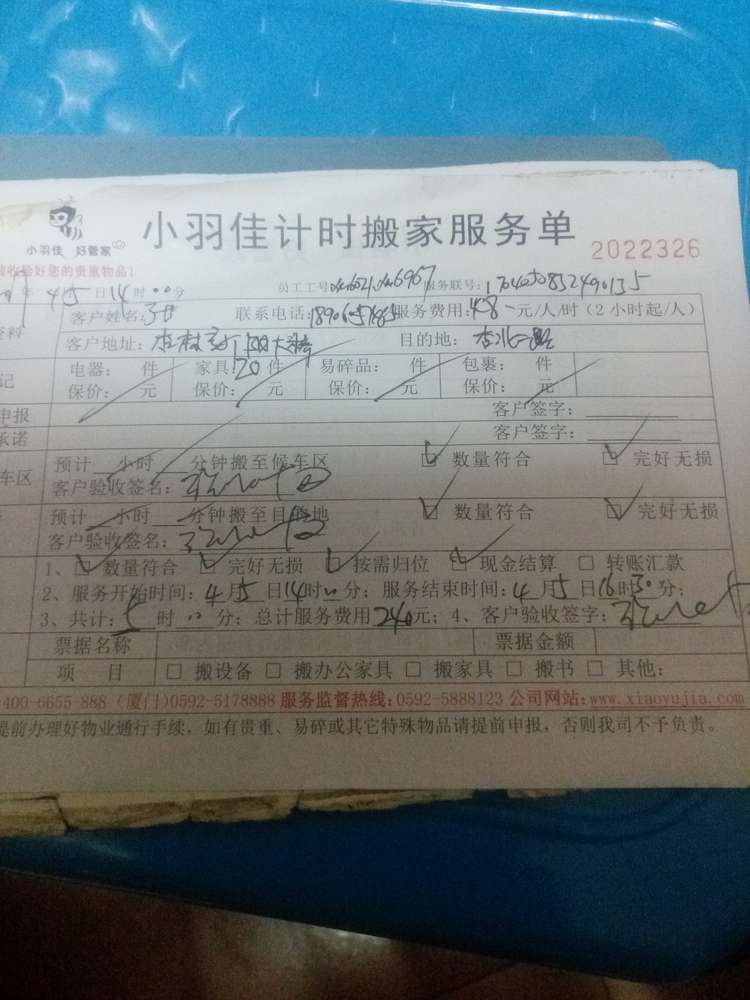 小羽佳 好管家
小羽佳计时搬家服务单
2022326
收验好您的贵重物品!
年 4月5日14时00分 员工工号 服务联号:
客户姓名: 联系电话: 服务费用:48元/人/时(2小时起/人)
客户地址: 目的地:
电器: 件 家具:120件 易碎品: 件 包裹: 件
保价: 元 保价: 元 保价: 元 保价: 元
申报 客户签字:
承诺 客户签字:
车区 预计 小时 分钟搬至候车区 数量符合 完好无损
客户验收签名:
预计 小时 分钟搬至目的地 数量符合 完好无损
客户验收签名:
1、 数量符合 完好无损 按需归位 现金结算 转账汇款
2、服务开始时间:4月5日14时00分;服务结束时间:4月5日16时30分;
3、共计:5时00分;总计服务费用240元;4、客户验收签字:
票据名称 票据金额
项 目 搬设备 搬办公家具 搬家具 搬书 其他:
400-6655-888 (厦门)0592-5178888 服务监督热线:0592-5888123 公司网站:www.xiaoyujia.com
提前办理好物业通行手续,如有贵重、易碎或其它特殊物品请提前申报,否则我司不予负责。